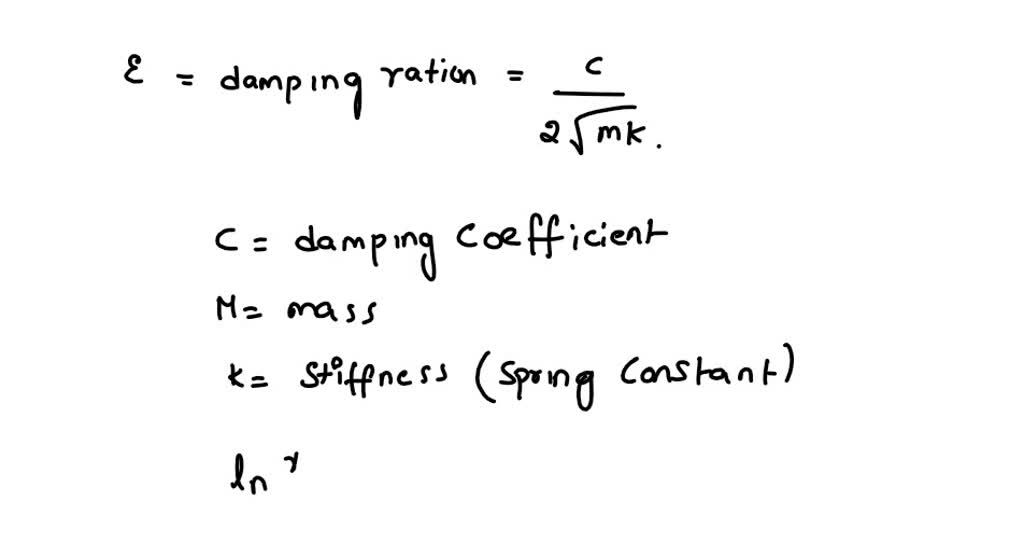 ε = damping ration = c / 2√mk.
C = damping coefficient
M = mass
k = stiffness (spring constant)
ln r